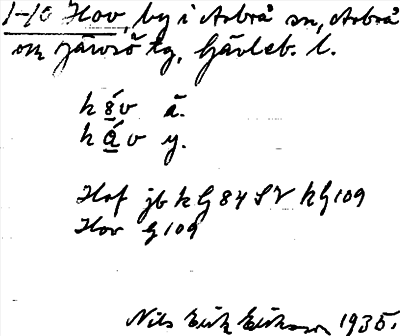 1-10 Hov, by i Arbrå sn, Arbrå
ok Järvsö tg, Gävleb. l.
hǻv ä.
hǻv y.
Hof jb kG 84 SV kG 109
Hov G 109
Nils Erik Eriksson 1935.